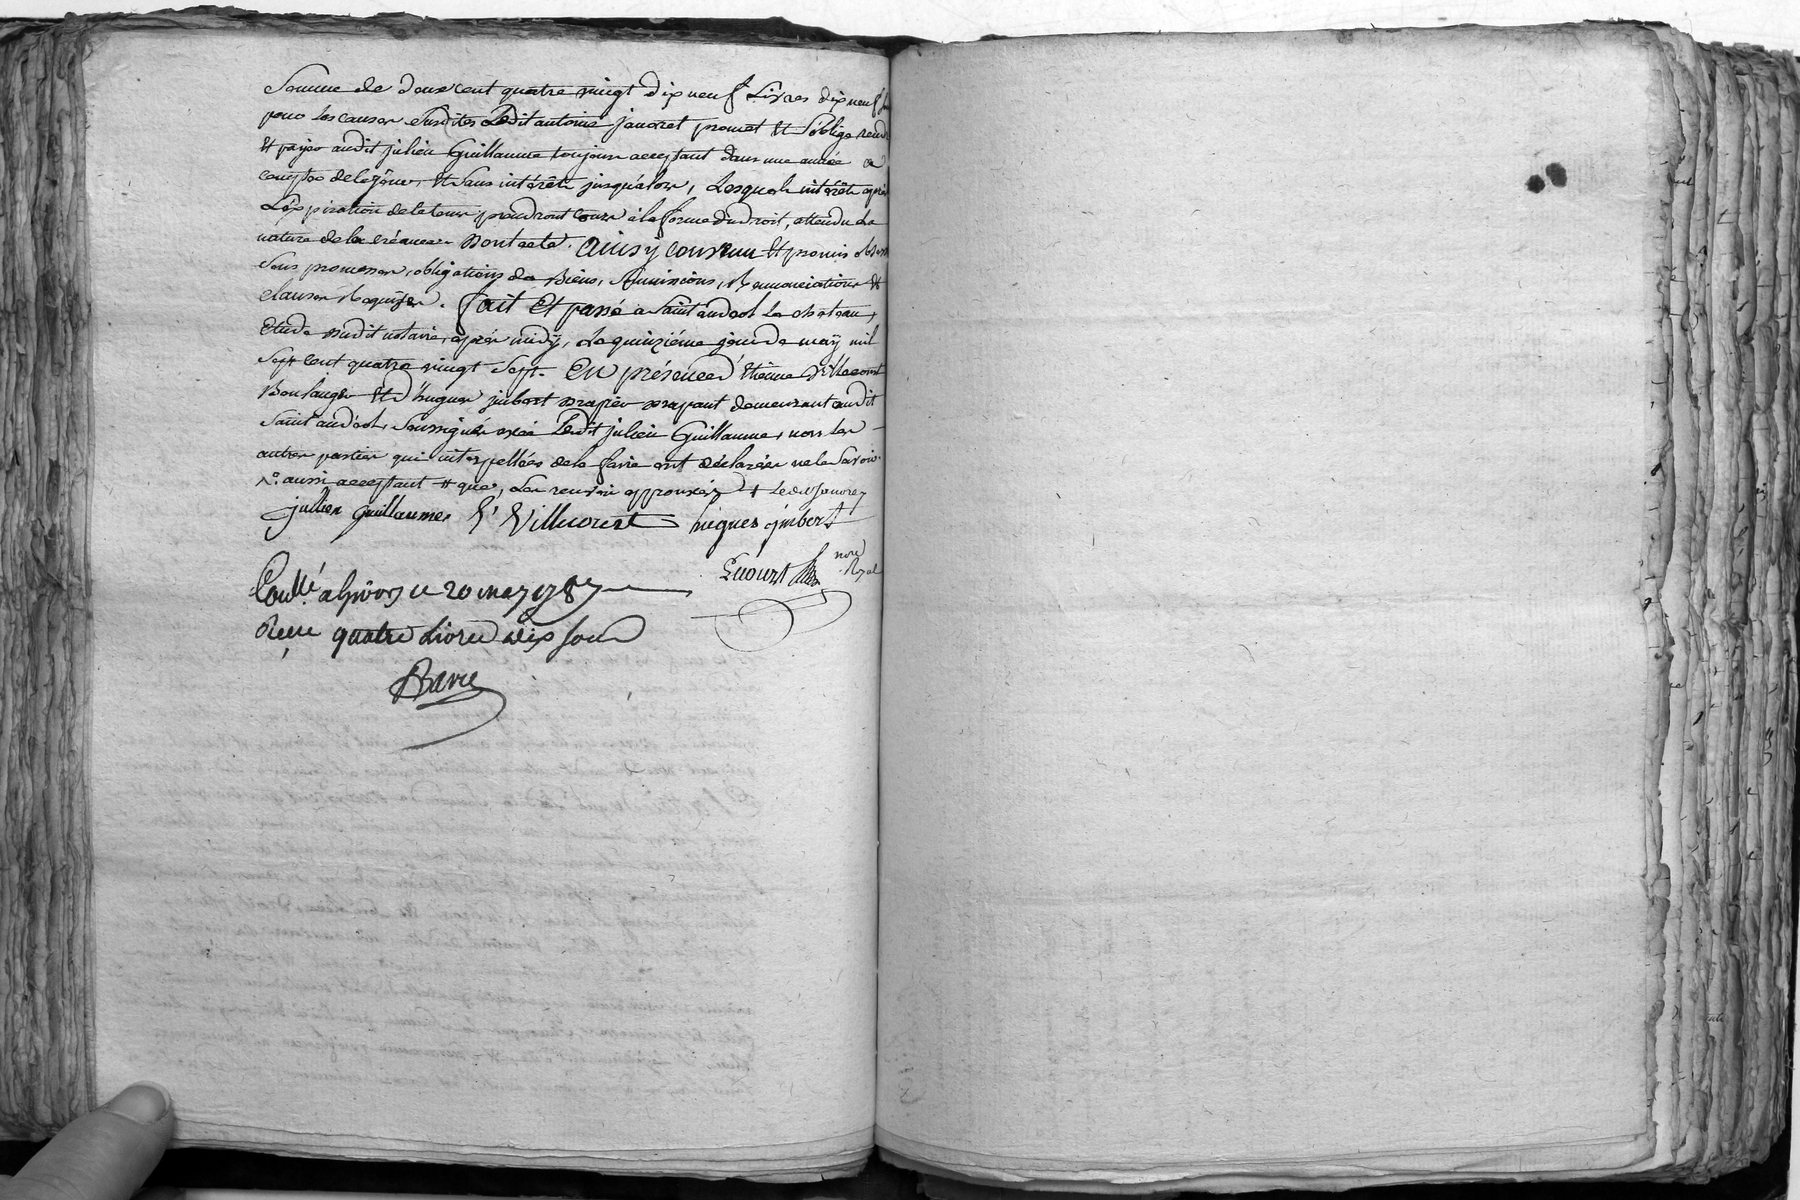 Somme de deux cent quatre vingt dix neuf Livres dix neuf
pour les causes susdites Ledit antoine janoret promet et s'oblige rend
et payer audit julien Guillaume toujours acceptant dans une année a
compter de ce jour, et sans intérêts jusqu'alors, Lesquels intérêts après
L'expiration de ce terme prendront cours à la forme du droit, attendu la
nature de la créance. Dont acte. Ainsy convenu et promis
sous promesses, obligations de Biens, soumissions, Renonciations et
clauses Requises. fait et passé à Saint andeol Le chateau,
étude dudit notaire, après midy, Le quinzième jour de may mil
sept cent quatre vingt sept. En présence d'étienne Villecourt
Boulanger et d'hugues jmbert drapier drapant demeurant audit
Saint andéol, soussignés avec Ledit julien Guillaume, non les
autres parties qui interpellées de le faire ont déclarées ne le savoir.
aussi acceptant # que, Les renvoi approuvés + Ledit Janorey
jullien guillaumes E' Villecourt hugues jmbert
nore
Royal
Con.lé a givors ce 20 may 1787
Reçu quatre Livres dix sous